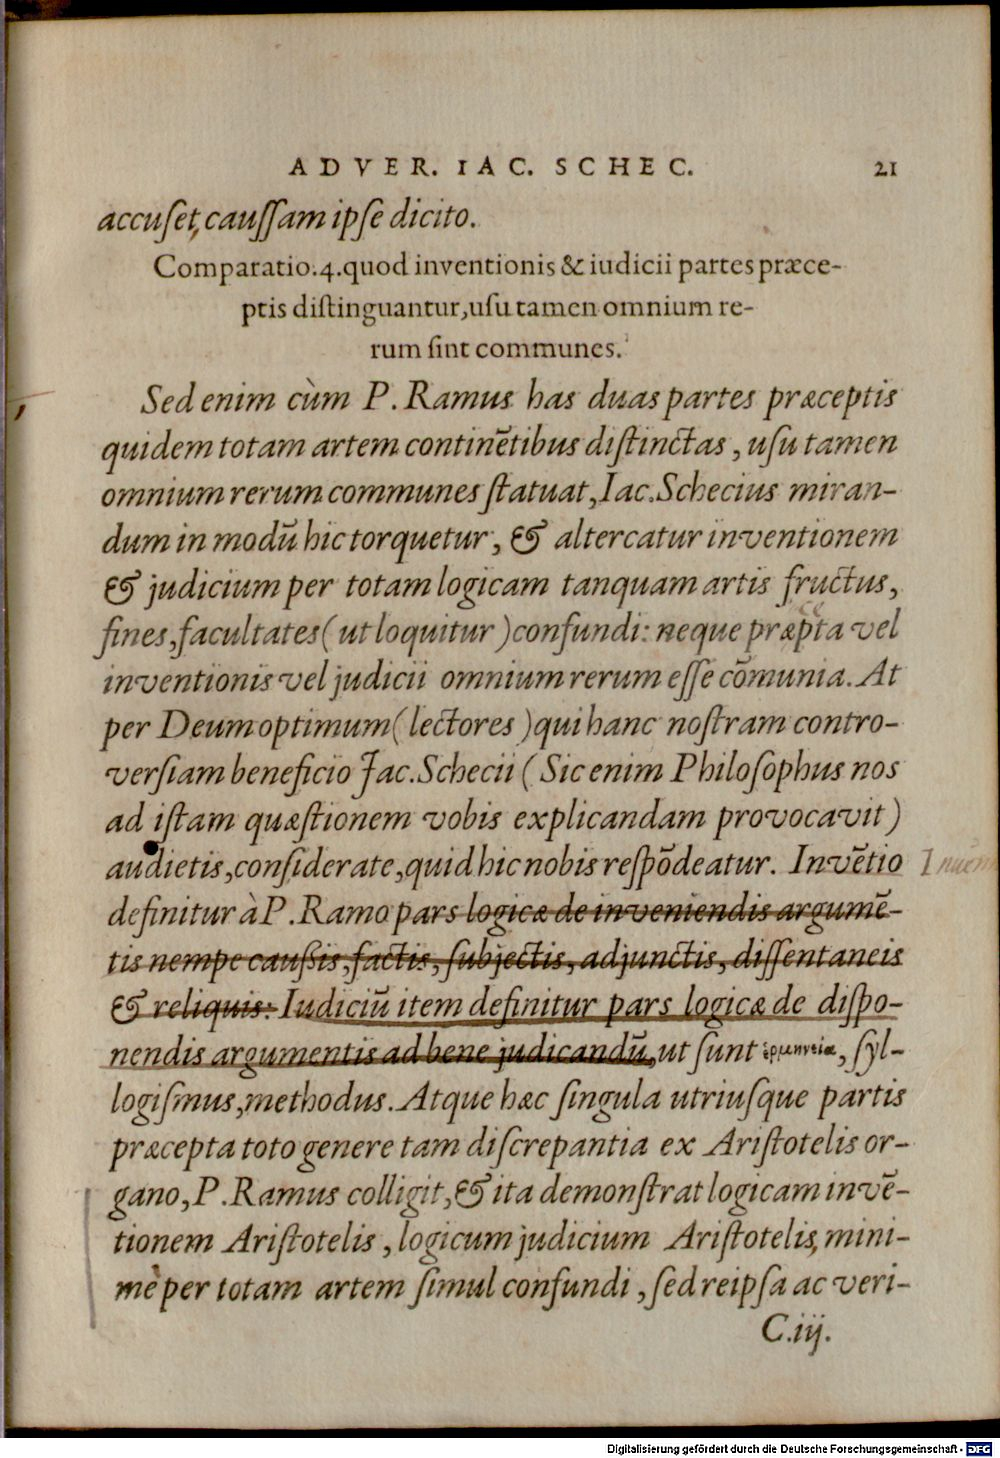 ADVER. IAC. SCHEC. 21
accuſet, cauſſam ipſe dicito.
Comparatio.4.quod inventionis & iudicii partes præce-
ptis diſtinguantur, uſu tamen omnium re-
rum ſint communes.
Sed enim cùm P. Ramus has duas partes præceptis
quidem totam artem continētibus diſtinctas, uſu tamen
omnium rerum communes ſtatuat, Iac. Schecius miran-
dum in modū hic torquetur, & altercatur inventionem
& judicium per totam logicam tanquam artis fructus,
fines, facultates (ut loquitur) confundi: neque præpta vel
ce
inventionis vel judicii omnium rerum eſſe cōmunia. At
per Deum optimum (lectores) qui hanc noſtram contro-
verſiam beneficio Jac. Schecii (Sic enim Philoſophus nos
ad iſtam quæſtionem vobis explicandam provocavit)
audietis, conſiderate, quid hic nobis reſpōdeatur. Invētio
definitur à P. Ramo pars logicæ de inveniendis argumē-
tis nempe cauſsis, factis, ſubjectis, adjunctis, diſſentaneis
& reliquis: Iudiciū item definitur pars logicæ de diſpo-
nendis argumentis ad bene judicandū, ut ſunt ἑρμηνεία, ſyl-
logiſmus, methodus. Atque hæc ſingula utriuſque partis
præcepta toto genere tam diſcrepantia ex Ariſtotelis or-
gano, P. Ramus colligit, & ita demonſtrat logicam invē-
tionem Ariſtotelis, logicum judicium Ariſtotelis, mini-
mè per totam artem ſimul confundi, ſed reipſa ac veri-
C.iij.
Digitalisierung gefördert durch die Deutsche Forschungsgemeinschaft - DFG